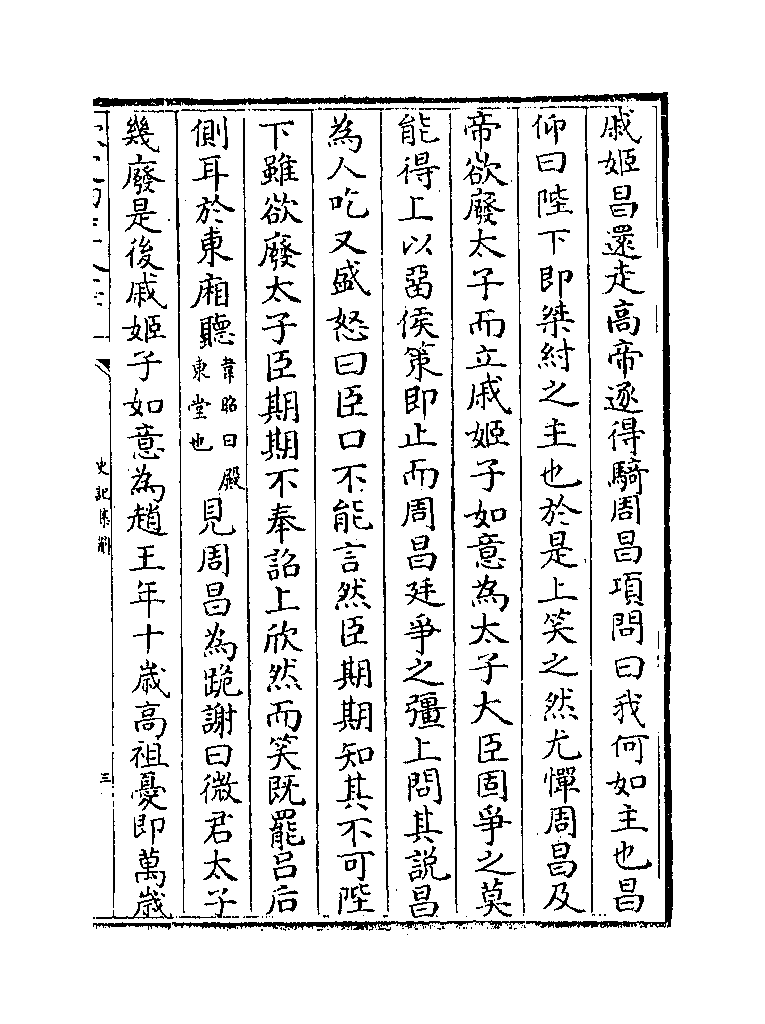 戚姬昌還走高帝逐得騎周昌項問曰我何如主也昌
仰曰陛下即桀紂之主也於是上笑之然尤憚周昌及
帝欲廢太子而立戚姬子如意為太子大臣固爭之莫
能得上以畱侯策即止而周昌廷爭之彊上問其説昌
為人吃又盛怒曰臣口不能言然臣期期知其不可陛
下雖欲廢太子臣期期不奉詔上欣然而笑既罷吕后
側耳於東廂聽韋昭曰殿東堂也見周昌為跪謝曰微君太子
幾廢是後戚姬子如意為趙王年十歳高祖憂即萬歳
史記集解
三